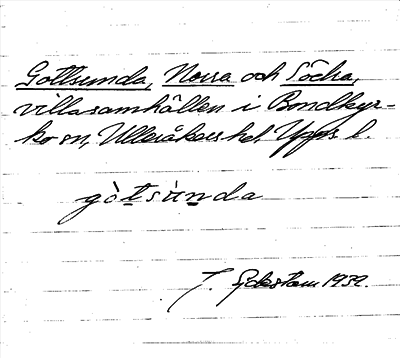 Gottsunda, Norra och Södra,
villasamhällen i Bondkyr-
ko sn, Ulleråkers hd, Upps. l.
gòtsùnda
1939.